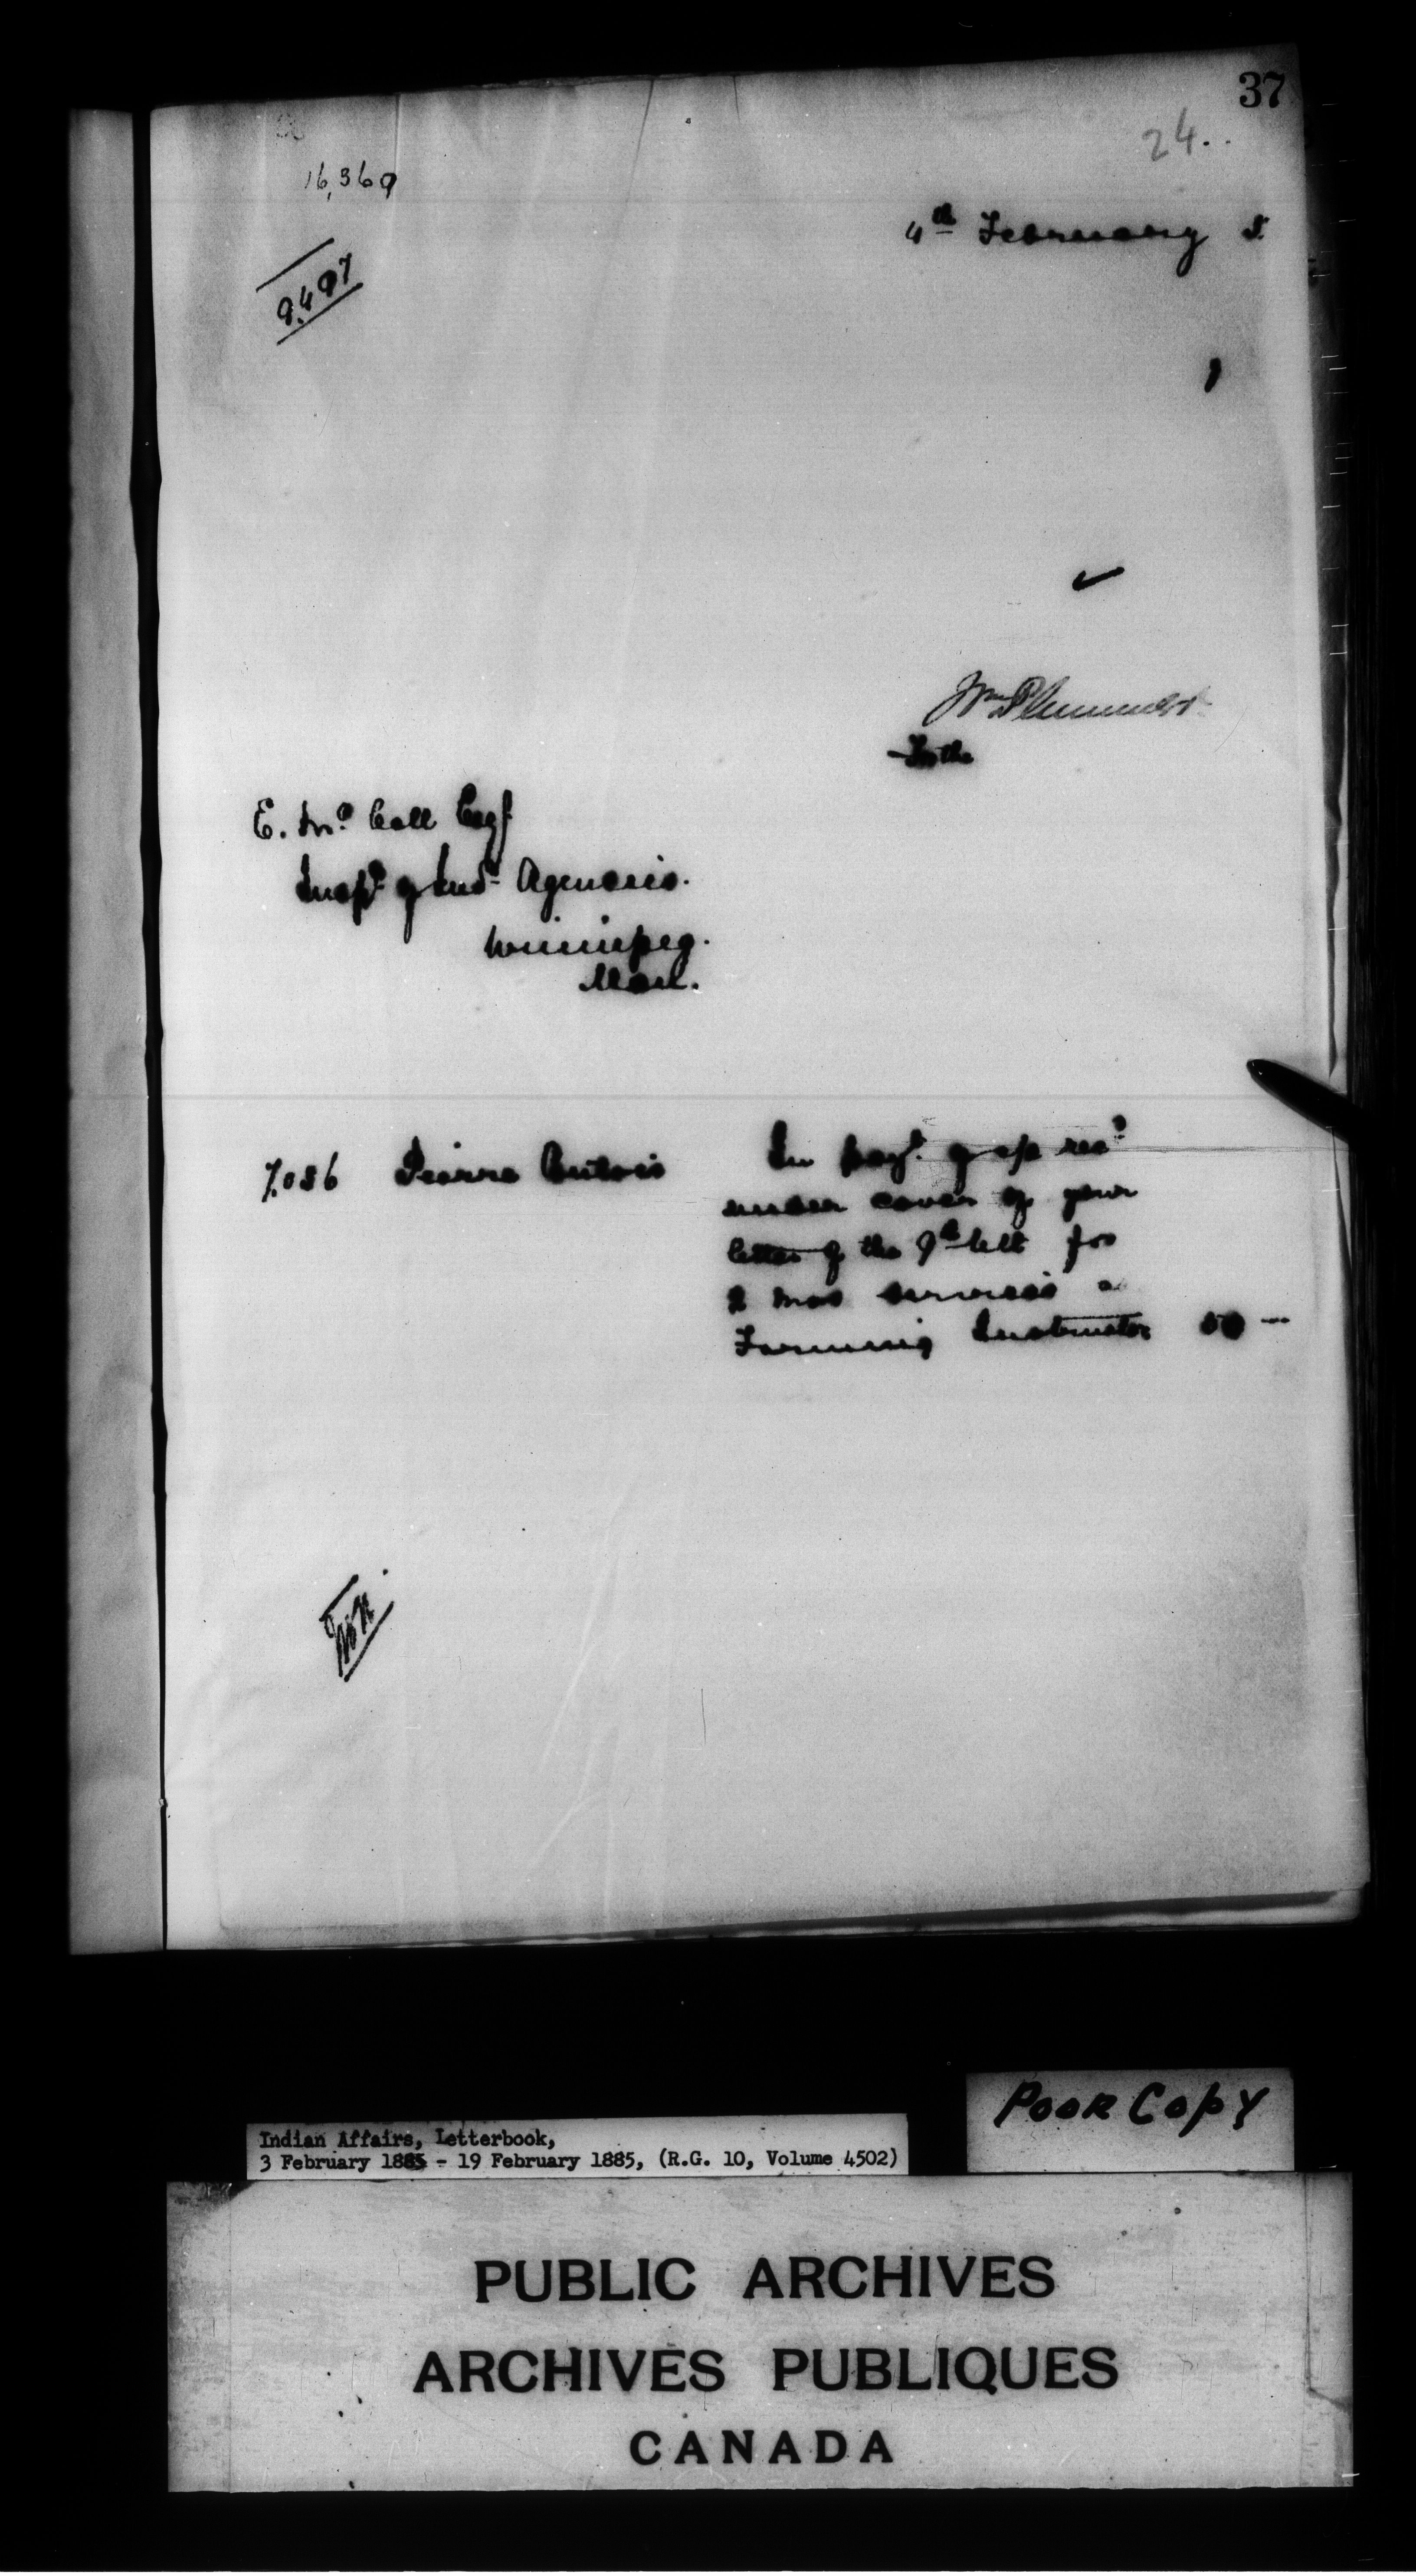 37
24.
16,369
4th February 5.
9.497
Wm Plummer
For the
E. McColl Esqr
Inspr of Indn Agencies.
Winnipeg.
Man.
7.086 Pierre
In payt of a/c recd
under cover of your
letter of the 9th Ult for
2 mos services a
Farming Instructor 50 --
POOR COPY
Indian Affairs, Letterbook,
3 February 1885 - 19 February 1885, (R.G. 10, Volume 4502)
PUBLIC ARCHIVES
ARCHIVES PUBLIQUES
CANADA